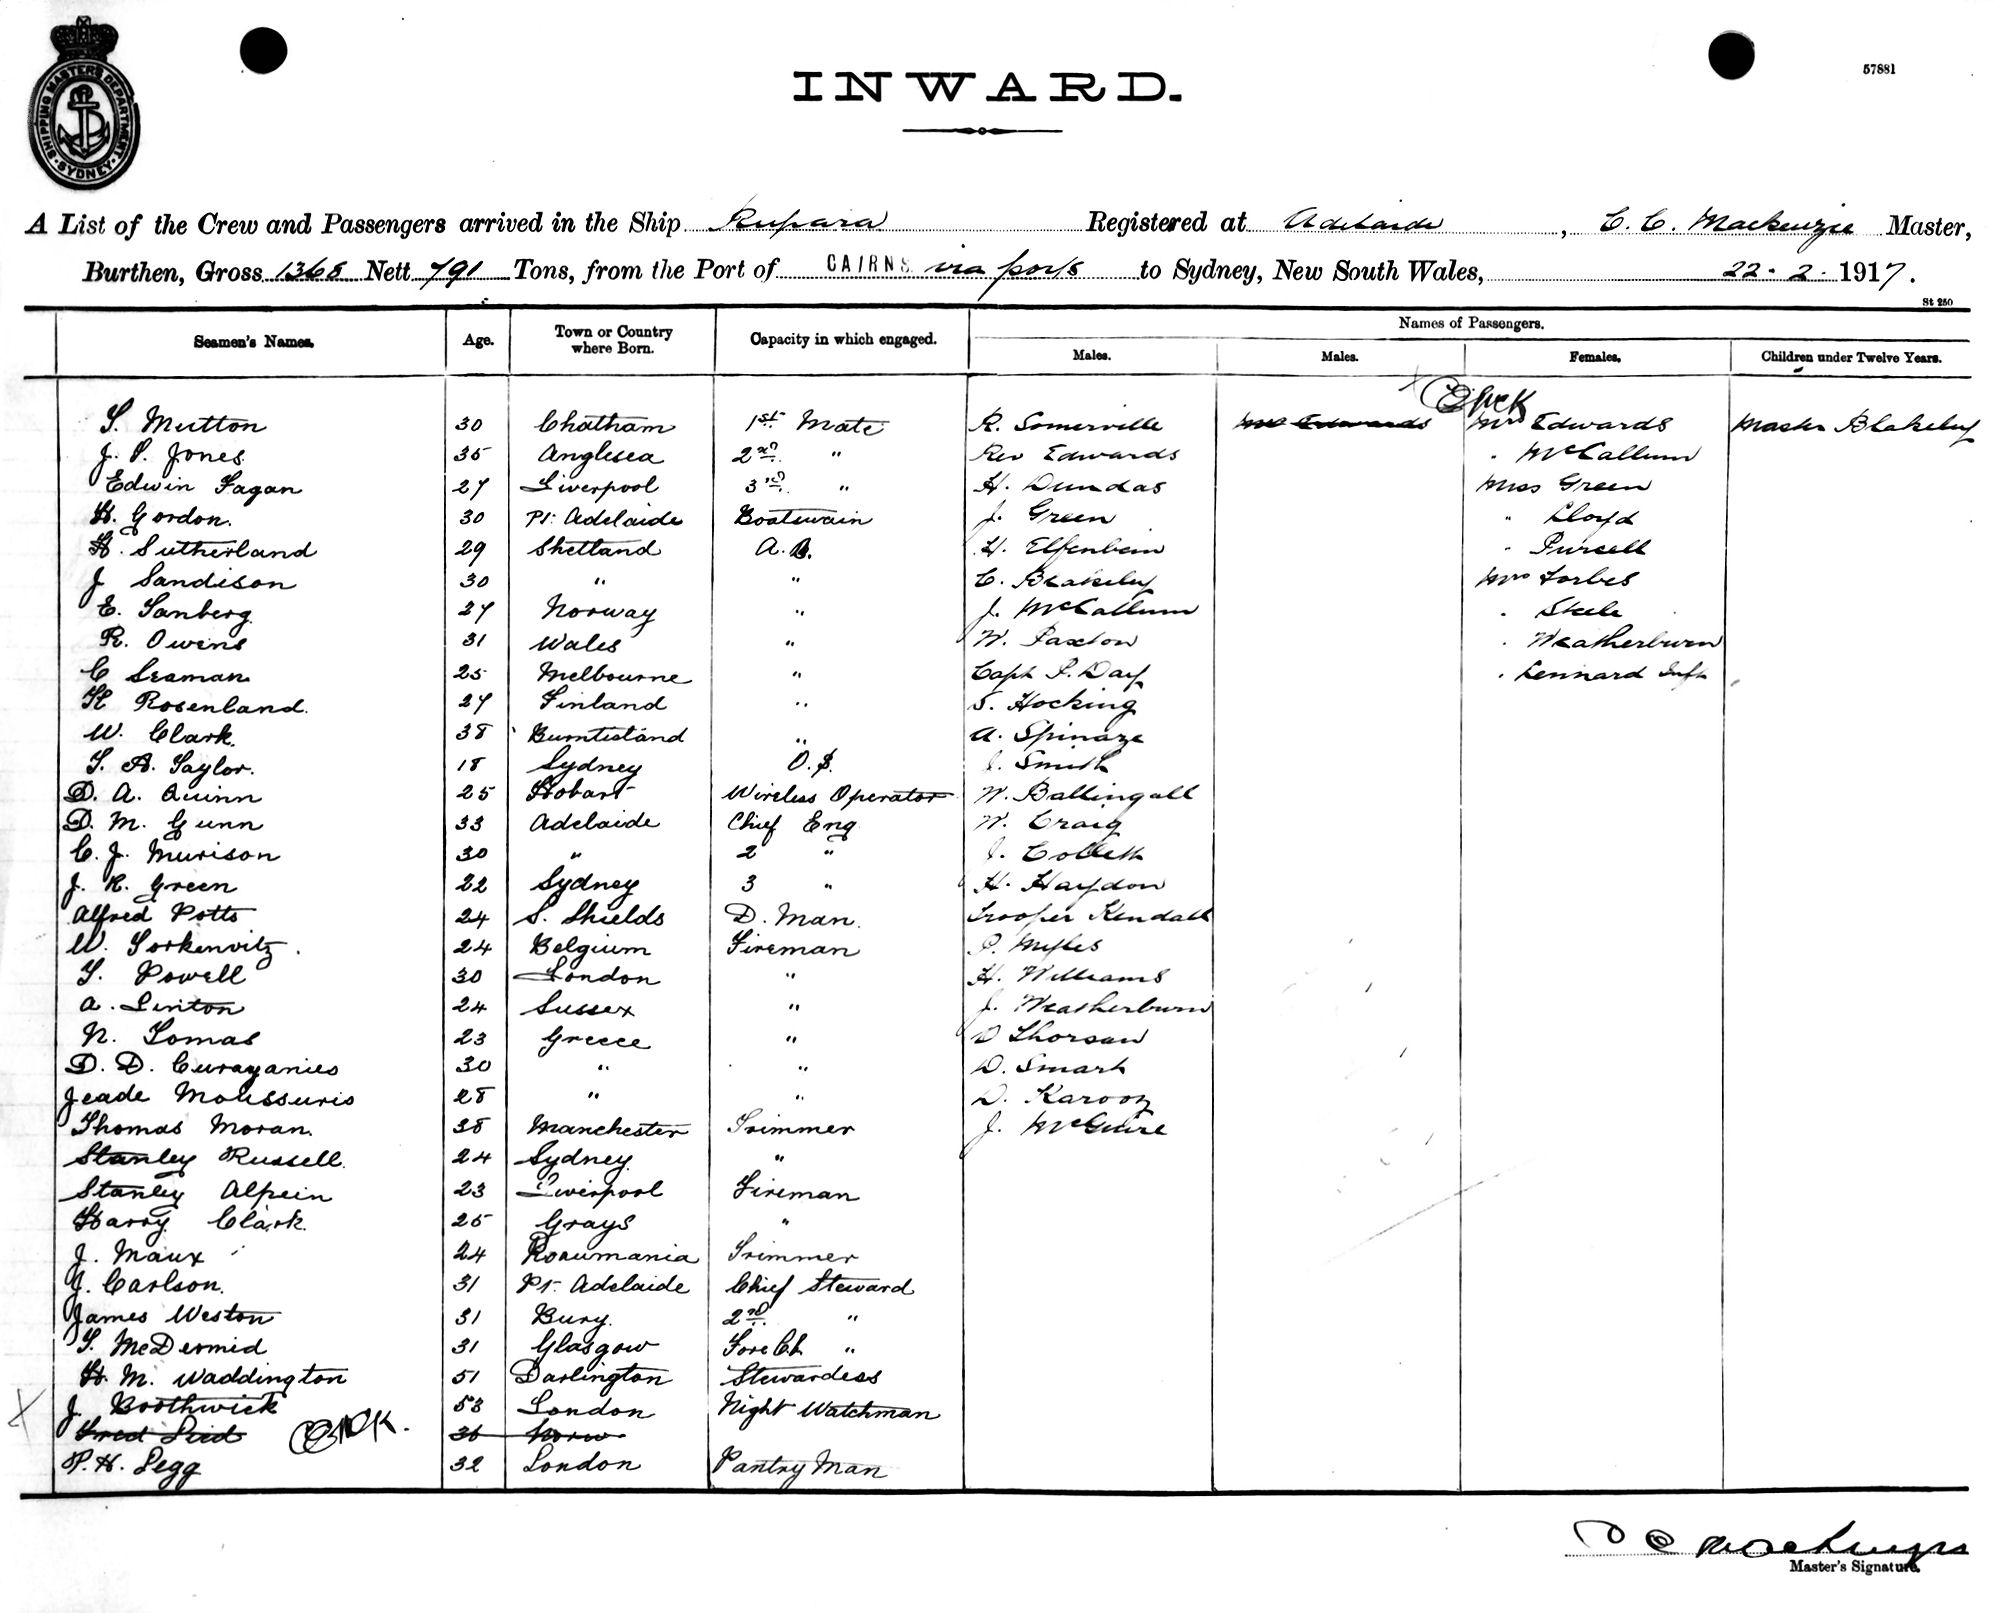 SHIPPING MASTER'S DEPARTMENT SYDNEY
57881
INWARD.
A List of the Crew and Passengers arrived in the Ship Rupara Registered at Adelaide, C. C. Mackenzie Master,
Burthen, Gross 1368 Nett 791 Tons, from the Port of CAIRNS via ports to Sydney, New South Wales, 22-2-1917.
St 250
Seamen's Names. Age. Town or Country where Born. Capacity in which engaged. Names of Passengers.
Males. Males. Females. Children under Twelve Years.
S. Mutton 30 Chatham 1st Mate R. Somerville Mrs Edwards Mrs Edwards Master Blakeley
J. P. Jones 35 Anglesea 2nd " Rev Edwards " McCallum
Edwin Fagan 27 Liverpool 3rd " H. Dundas Miss Green
H. Gordon. 30 Pt. Adelaide Boatswain J. Green " Lloyd
H. Sutherland 29 Shetland A.B. H. Elfenbein " Pursell
J Sandison 30 " " C. Blakeley Mrs Forbes
E. Sanberg 27 Norway " J. McCallum " Steele
R. Owens 31 Wales " W. Paxton " Weatherburn
C Seaman 25 Melbourne " Capt P. Day " Lennard Inft
K Rosenland. 27 Finland " S. Hocking
W. Clark. 38 Burntisland " A. Spinaze
S. A. Taylor. 18 Sydney O.S. J. Smith
D. A. Quinn 25 Hobart Wireless Operator W. Ballingall
D. M. Gunn 33 Adelaide Chief Eng W. Craig
C. J. Murison 30 " 2 " J. Collett
J. R. Green 22 Sydney 3 " H. Haydon
Alfred Potts 24 S. Shields D. Man. Trooper Kendall
W. 24 Belgium Fireman P. Myles
S. Powell 30 London " H. Williams
A. Linton 24 Sussex " J. Weatherburn
N. Tomas 23 Greece " D
D. D. Curayanies 30 " " D. Smart
Jeade Moussuris 28 " " D. Karooz
Thomas Moran. 38 Manchester Trimmer J. McGuire
Stanley Russell. 24 Sydney "
Stanley Alpein 23 Liverpool Fireman
Harry Clark. 25 Grays "
J. Maux 24 Roaumania Trimmer
J. Carlson. 31 Pt. Adelaide Chief Steward
James Weston 31 Bury. 2nd "
S. McDermid 31 Glasgow Fore Cb "
H. M. Waddington 51 Darlington Stewardess
J. Boothwick 53 London Night Watchman
Fred 36 Norw
P. H. Legg 32 London Pantry Man
Master's Signature.